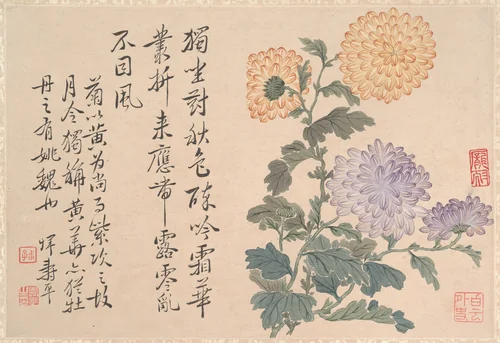 獨坐對秋色酔吟霜華
叢折来應帶露零亂
不因風
菊以黄为尚而紫次之故
月令獨稱黄華亦猶牡
丹之有姚魏也
惲壽平